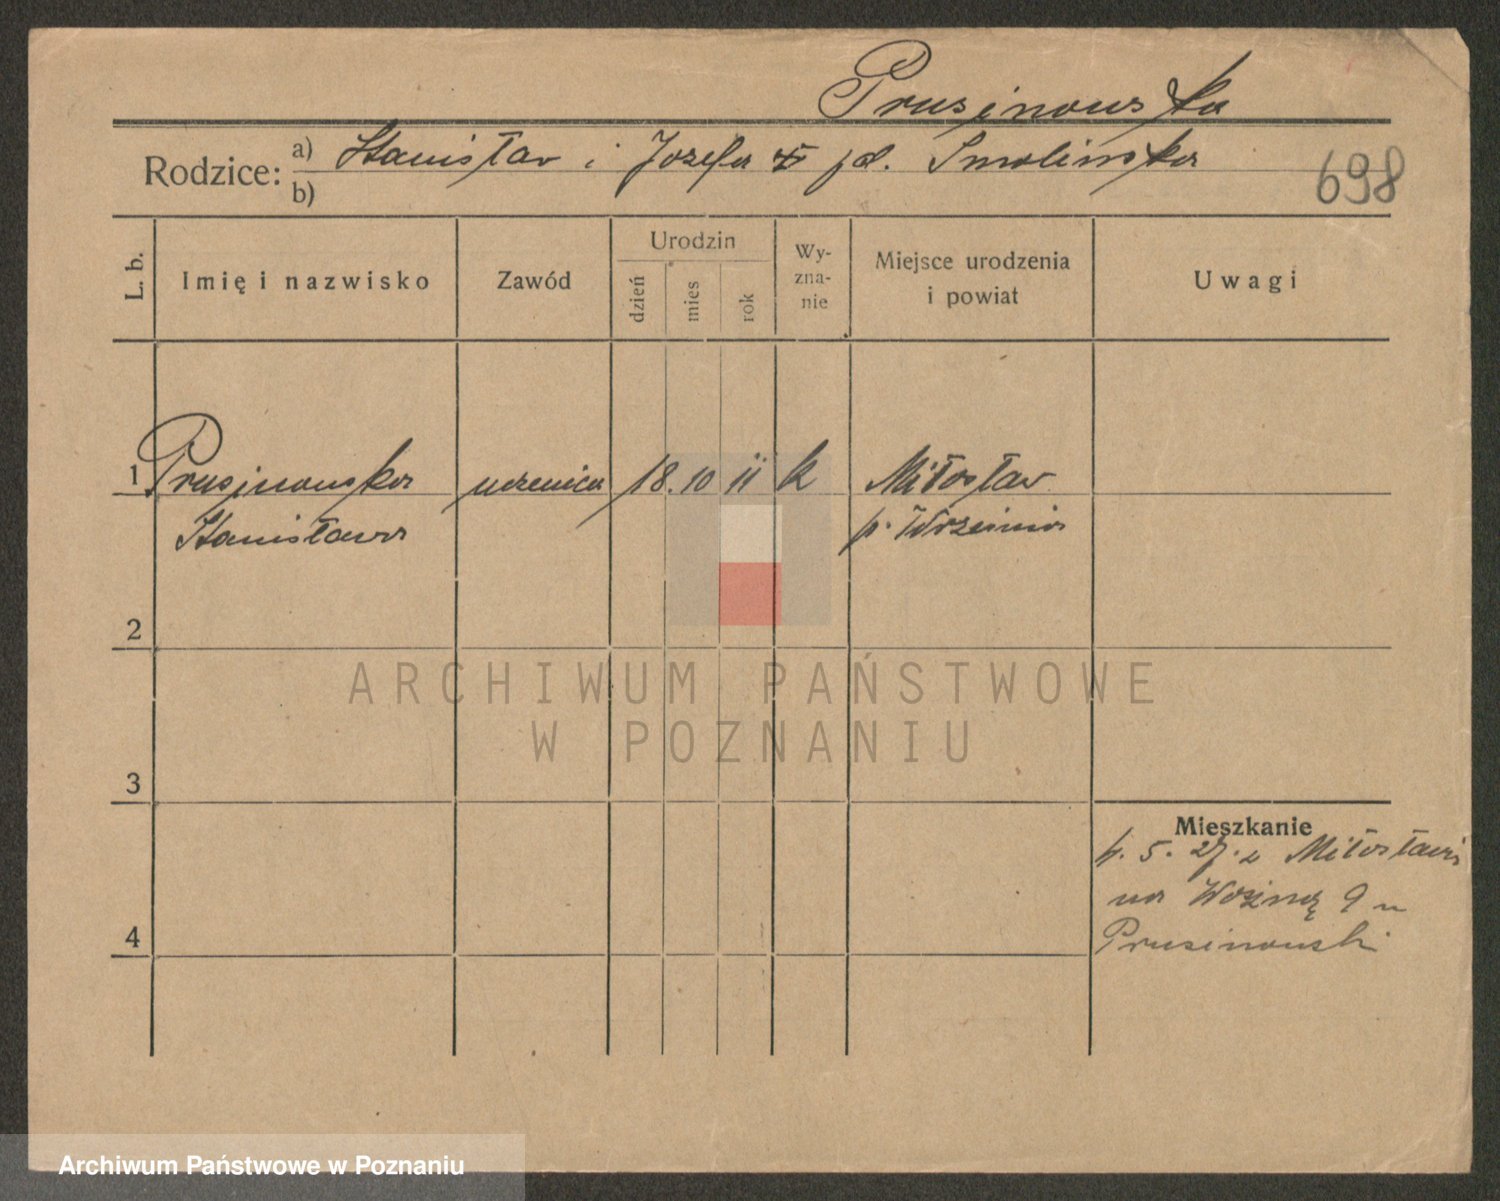 Prusinowska
Rodzice: a) Stanisław i Józefa z d. Smolińska
b)
698
L. b.
Imię i nazwisko
Zawód
Urodzin
dzień
mies
rok
Wy-
zna-
nie
Miejsce urodzenia
i powiat
Uwagi
1 Prusinowska uczenica 18. 10 11 k Miłosław
Stanisława p. Września
2
3
4
Mieszkanie
4. 5. 27. z Miłosławia
na Woźną 9 u
Prusinowski
ARCHIWUM PAŃSTWOWE
W POZNANIU
Archiwum Państwowe w Poznaniu